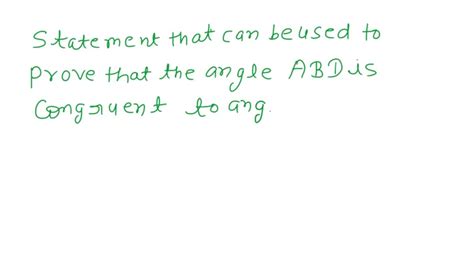 Statement that can be used to
Prove that the angle ABD is
Congruent to ang.